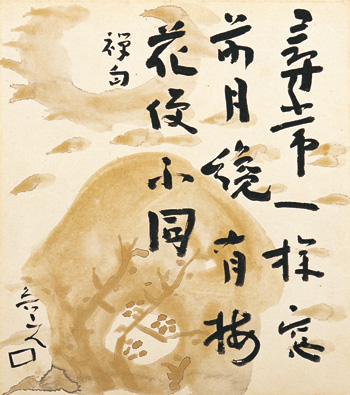 尋常一様窓
前月纔有梅
花便不同
禅句